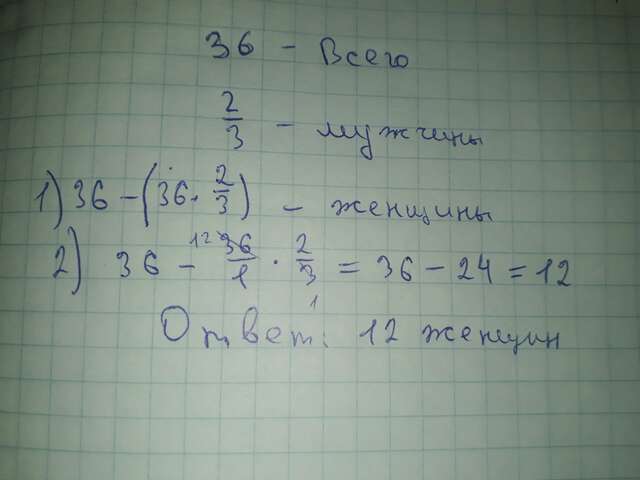 36 - Всего
2/3 - мужчины
1) 36 - (36 · 2/3) - женщины
2) 36 - 12 36/1 · 2/3 1 = 36 - 24 = 12
Ответ: 12 женщин